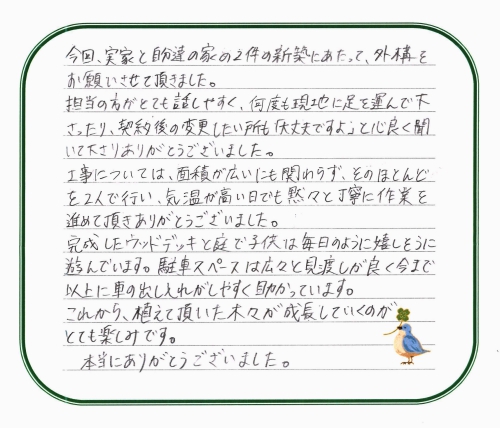 今回、実家と自分達の家の2件の新築にあたって、外構を
お願いさせて頂きました。
担当の方がとても話しやすく、何度も現地に足を運んで下
さったり、契約後の変更したい所も「大丈夫ですよ」と心良く聞
いて下さりありがとうございました。
工事については、面積が広いにも関わらず、そのほとんど
を2人で行い、気温が高い日でも黙々と丁寧に作業を
進めて頂きありがとうございました。
完成したウッドデッキと庭で子供は毎日のように嬉しそうに
遊んでいます。駐車スペースは広々と見渡しが良く今まで
以上に車の出し入れがしやすく助かっています。
これから、植えて頂いた木々が成長していくのが
とても楽しみです。
本当にありがとうございました。